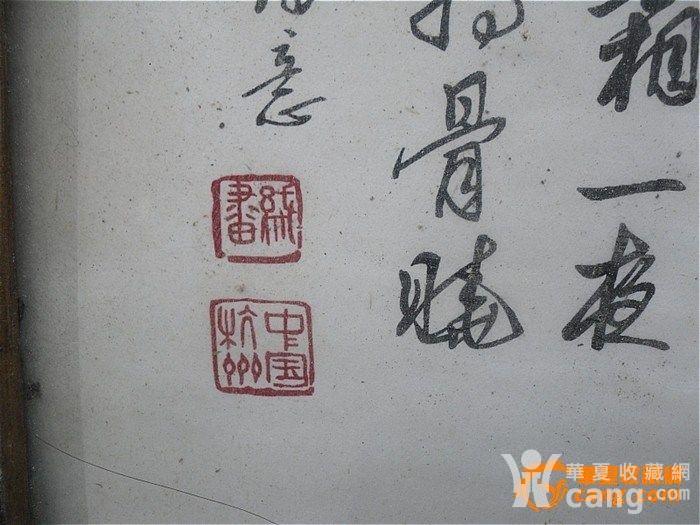 箱一夜
骨曉
意
絲畫
中国
杭州
華夏收藏網
cang.com